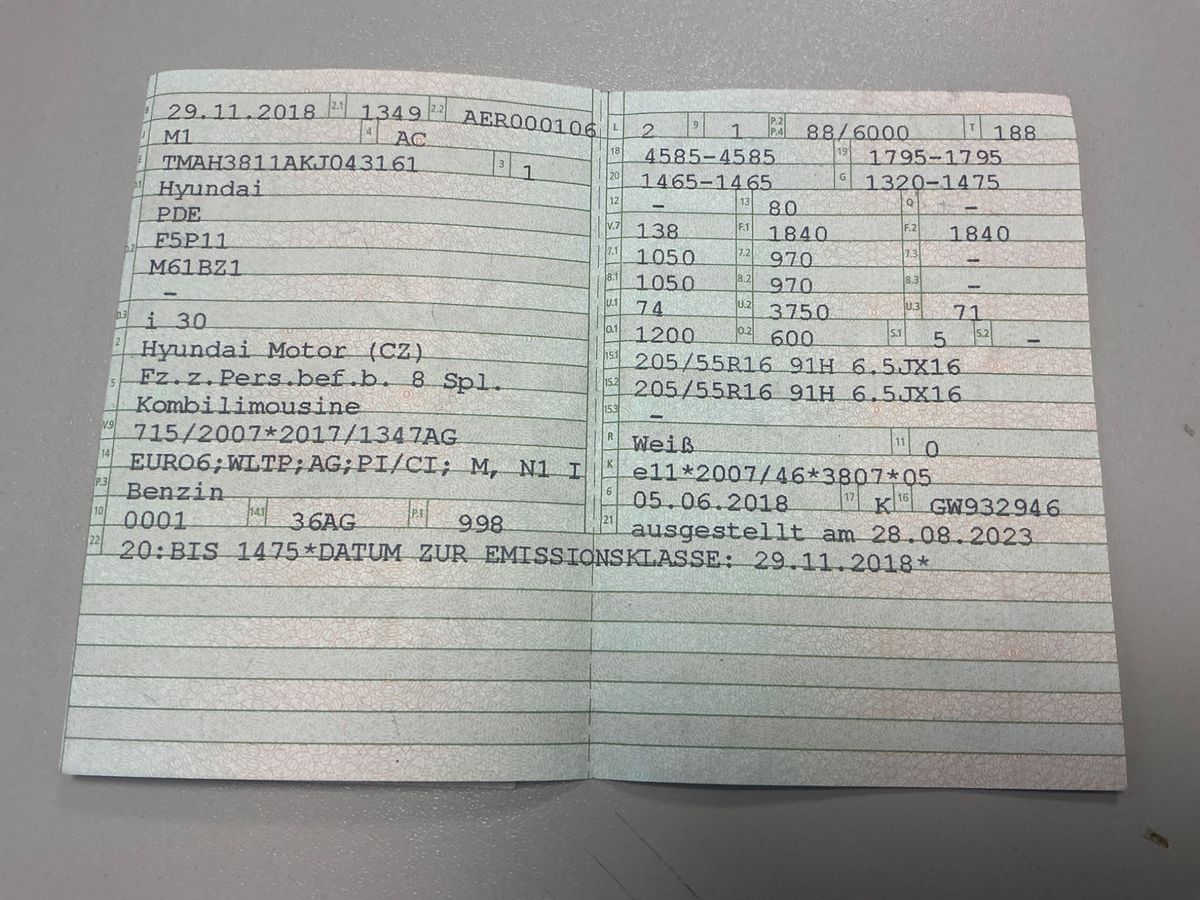 B 29.11.2018 2.1 1349 2.2 AER000106
J M1 4 AC
E TMAH3811AKJ043161 3 1
D.1 Hyundai
PDE
D.2 F5P11
M61BZ1
–
D.3 i 30
2 Hyundai Motor (CZ)
5 Fz.z.Pers.bef.b. 8 Spl.
Kombilimousine
V.9 715/2007*2017/1347AG
14 EURO6;WLTP;AG;PI/CI; M, N1 I
P.3 Benzin
10 0001 14.1 36AG P.1 998
L 2 9 1 P.2 P.4 88/6000 T 188
18 4585-4585 19 1795-1795
20 1465-1465 G 1320-1475
12 – 13 80 Q –
V.7 138 F.1 1840 F.2 1840
7.1 1050 7.2 970 7.3 –
8.1 1050 8.2 970 8.3 –
U.1 74 U.2 3750 U.3 71
O.1 1200 O.2 600 S.1 5 S.2 –
15.1 205/55R16 91H 6.5JX16
15.2 205/55R16 91H 6.5JX16
15.3 –
R Weiß 11 0
K e11*2007/46*3807*05
6 05.06.2018 17 K 16 GW932946
21 ausgestellt am 28.08.2023
22 20:BIS 1475*DATUM ZUR EMISSIONSKLASSE: 29.11.2018*